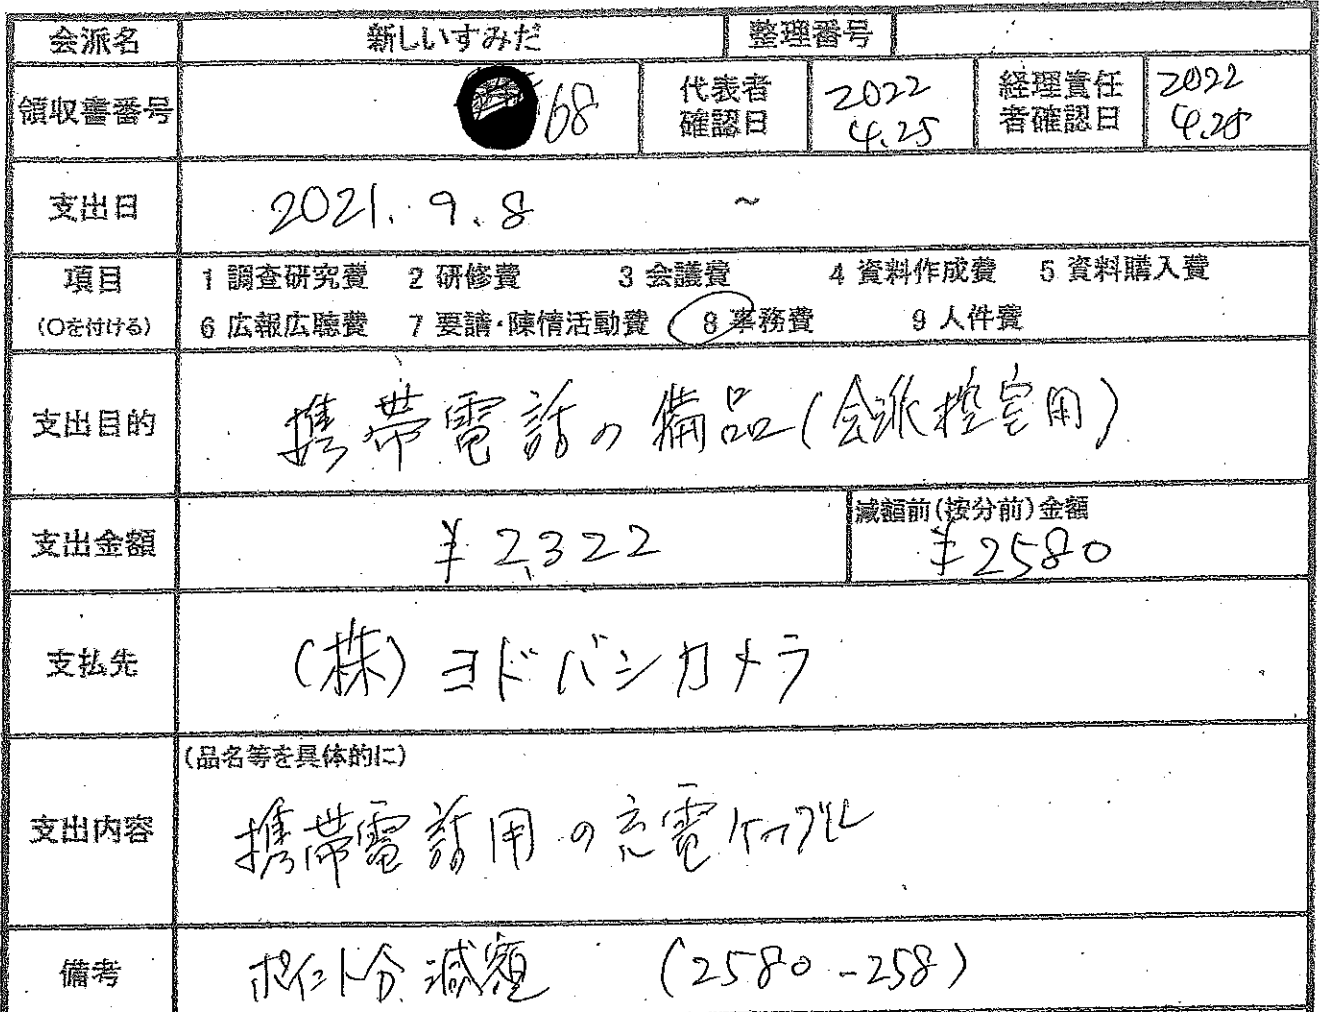 会派名 新しいすみだ 整理番号
領収書番号 68 代表者確認日 2022 4.25 経理責任者確認日 2022 4.25
支出日 2021. 9. 8 ~
項目 1 調査研究費 2 研修費 3 会議費 4 資料作成費 5 資料購入費
(○を付ける) 6 広報広聴費 7 要請・陳情活動費 8 事務費 9 人件費
支出目的 携帯電話の備品(会派控室用)
減額前(按分前)金額
支出金額 ¥2,322 ¥2580
支払先 (株)ヨドバシカメラ
(品名等を具体的に)
支出内容 携帯電話用の充電ケーブル
備考 ポイント分減額 (2580-258)